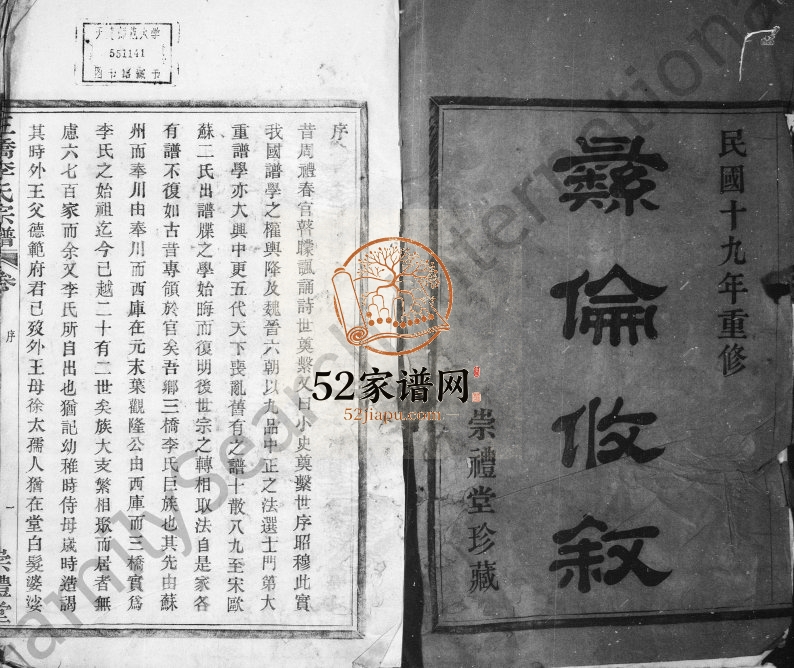 民國十九年重修
彝倫攸敘
崇禮堂珍藏
551141
序
昔周禮春官瞽矇諷誦詩世奠繫又曰小史奠繫世序昭穆此實
我國譜學之權輿降及魏晉六朝以九品中正之法選士門第大
重譜學亦大興中更五代天下喪亂舊有之譜十散八九至宋歐
蘇二氏出譜牒之學始晦而復明後世宗之轉相取法自是家各
有譜不復如古昔專領於官矣吾鄉三橋李氏巨族也其先由蘇
州而奉川由奉川而西庫在元末葉觀隆公由西庫而三橋實爲
李氏之始祖迄今已越二十有二世矣族大支繁相聚而居者無
慮六七百家而余又李氏所自出也猶記幼稚時侍母歲時造謁
其時外王父德範府君已歿外王母徐太孺人猶在堂白髮婆娑
三橋李氏宗譜
卷
序
一
崇禮堂
52家谱网
52jiapu.com
FamilySearch International